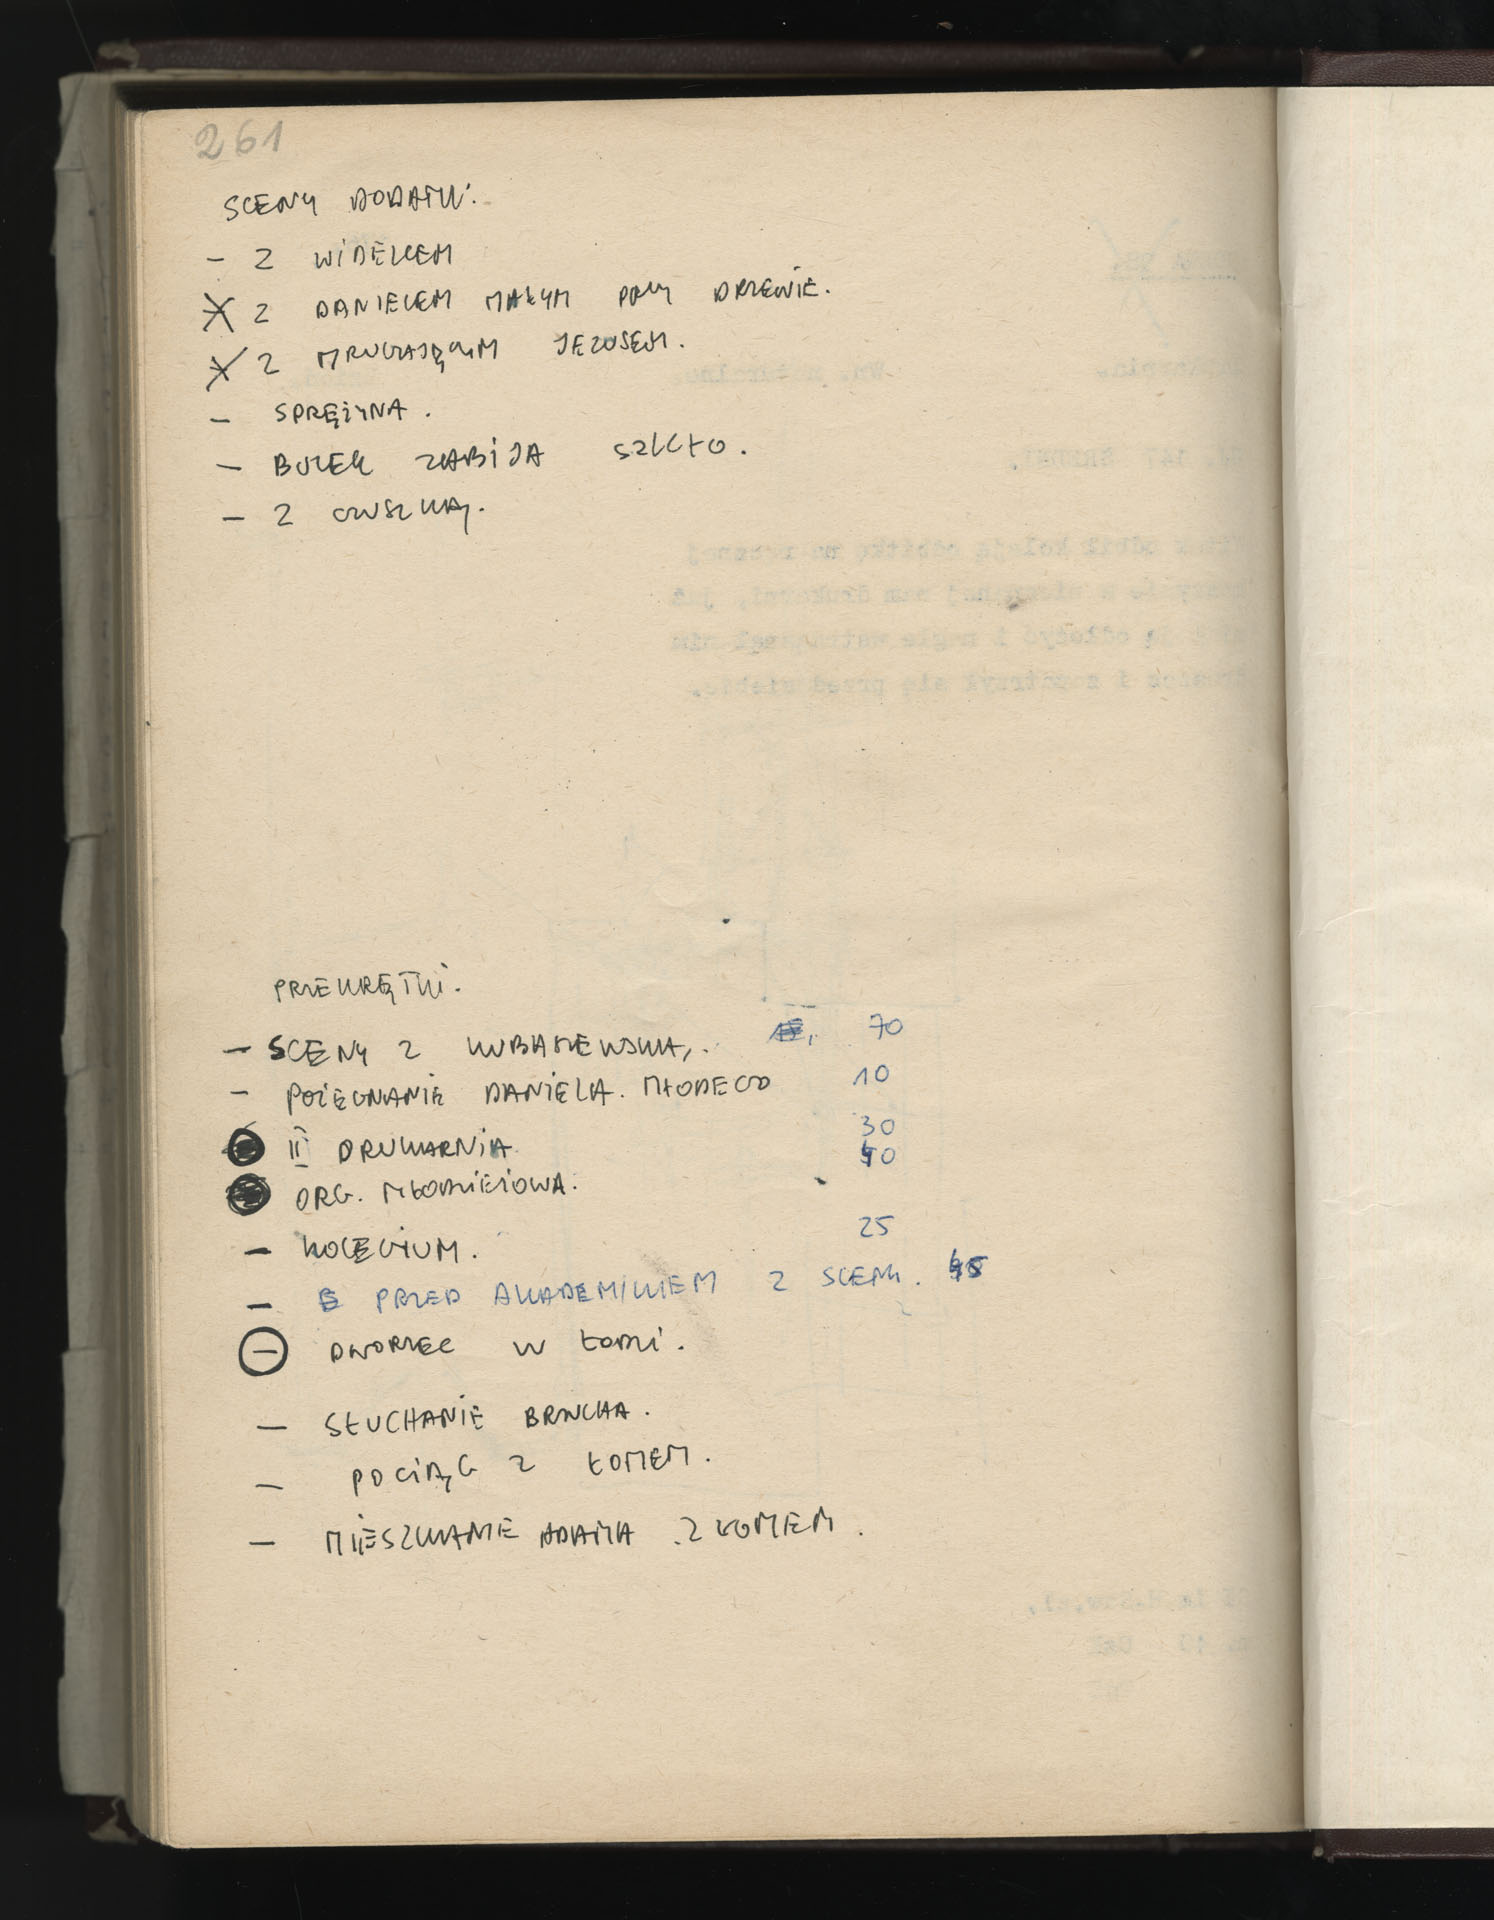 261
SCENY DODATKI.
- Z WIDELCEM
X Z DANIELEM MAŁYM PRZY DRZEWIE.
X Z MRUGAJĄCYM JEZUSEM.
- SPRĘŻYNA.
- BUREK ZABIJA SZKŁO.
- Z
PRZEKRĘTKI.
- SCENY Z KUBASZEWSKĄ. 70
- POŻEGNANIE DANIELA. MŁODEGO 10
II DRUKARNIA 30
ORG. MŁODZIEŻOWA. 40
- KOLEGIUM. 25
- PRZED AKADEMIKIEM Z SCENY. 45
- DWORZEC W ŁODZI.
- SŁUCHANIE BRUCHA.
- POCIĄG Z ŁOMEM.
- MIESZKANIE ADAMA Z ŁOMEM.